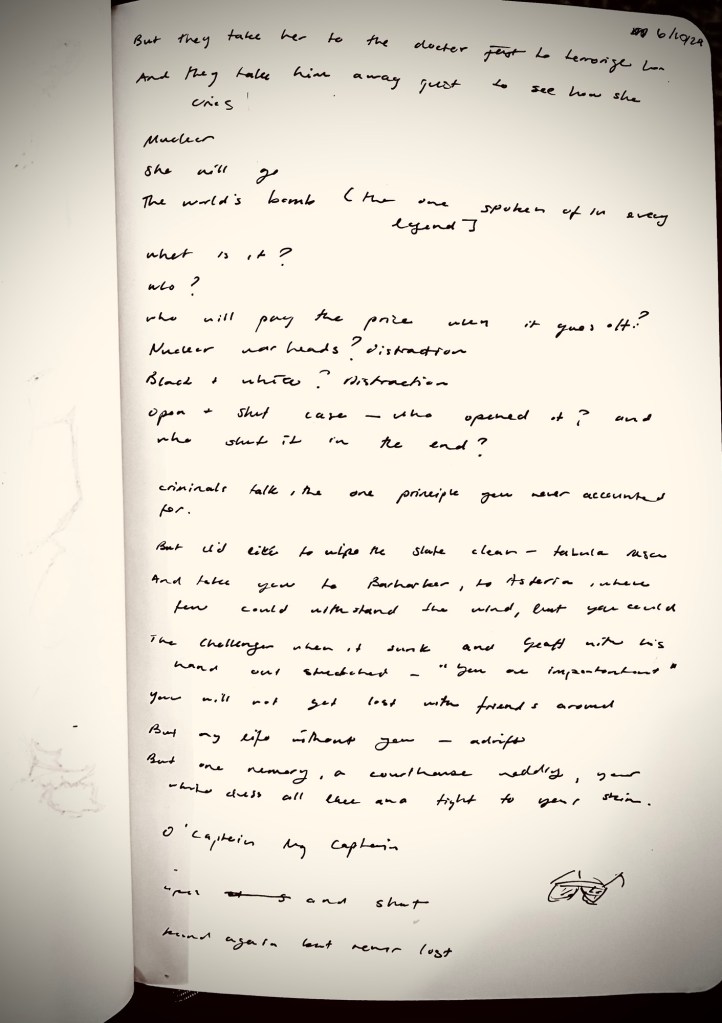 6/10/24
But they take her to the doctor just to terrorize him
And they take him away just to see how she
cries!
Nuclear
she will go
The world's bomb [the one spoken of in every
legend]
what is it?
who?
who will pay the price when it goes off?
Nuclear warheads? distraction
Black + white? distraction
open + shut case – who opened it? and
who shut it in the end?
criminals talk, the one principle you never accounted
for.
But I'd like to wipe the slate clean – tabula rasa
And take you to, to Asteria, where
few could withstand the wind, but you could
The Challenger when it sunk and Geoff with his
hand out stretched – "You are important"
You will not get lost with friends around
But my life without you – adrift
But one memory, a courthouse wedding, your
white dress all lace and tight to your skin.
O'Captain My Captain
open and shut
found again but never lost